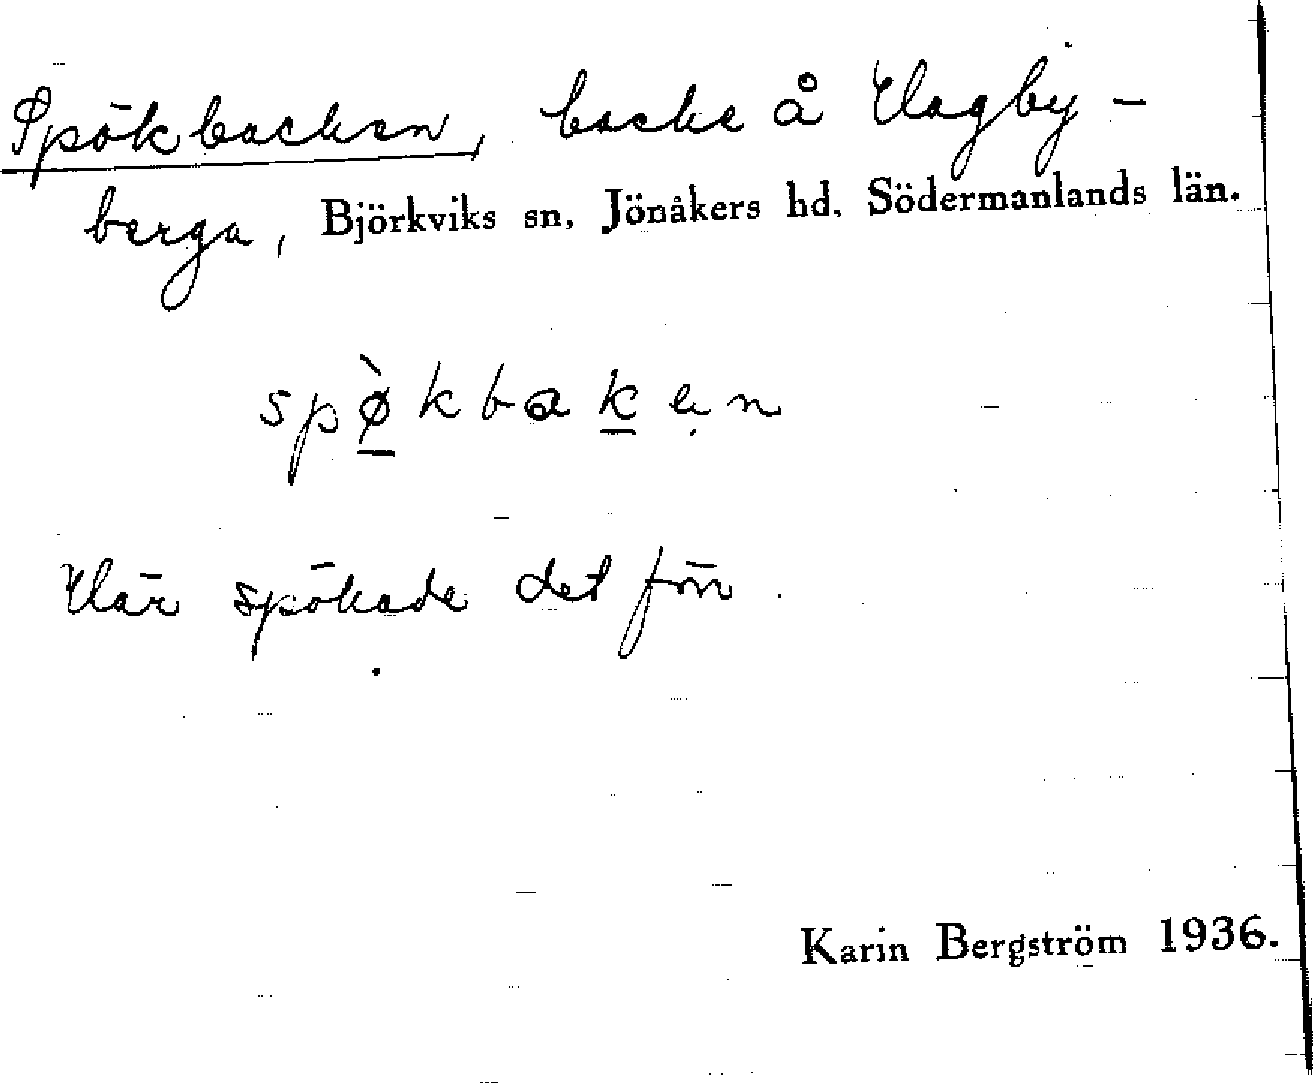 Spökbacken, backe å Hagby-
berga, Björkviks sn, Jönåkers hd. Södermanlands län.
spø̱̀kbaḵẹn
Här spökade det förr.
Karin Bergström 1936.